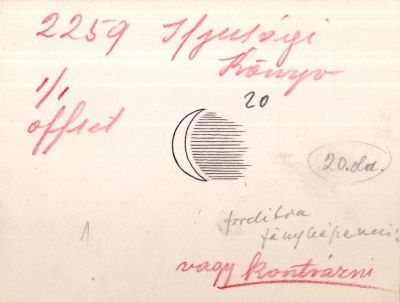 2259 Ifjusági
Könyv
1/1
offset
20
20. old.
1
fordítva
fényképezni!
vagy kontrázni